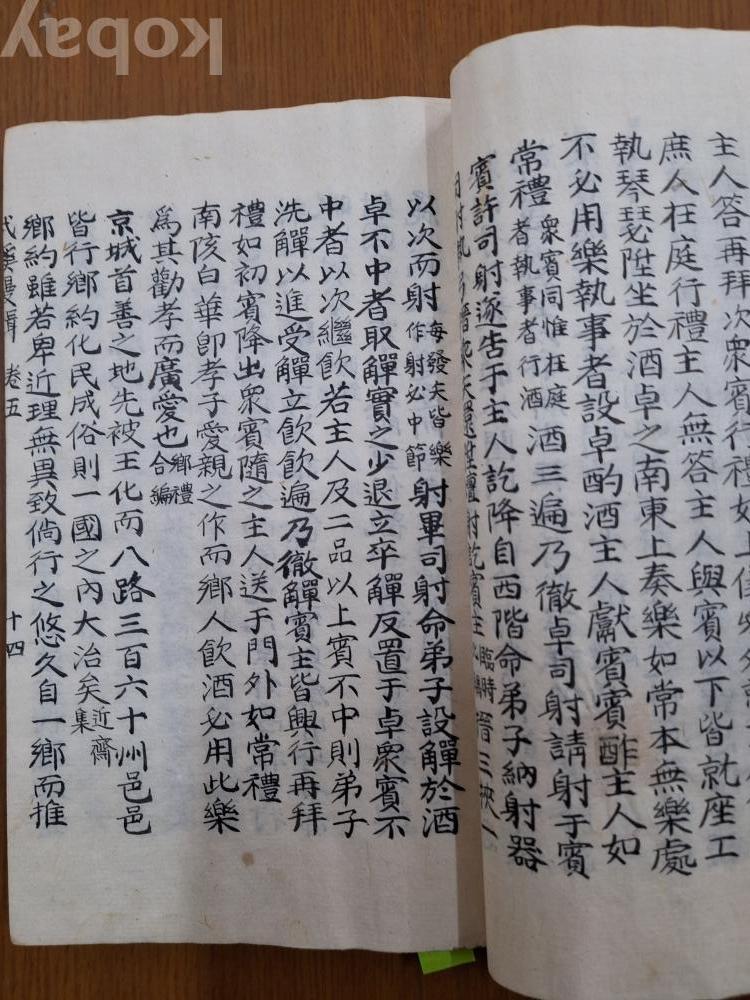 kobay
主人答再拜次衆賓行禮
庶人在庭行禮主人無答主人與賓以下皆就座工
執琴瑟陞坐於酒卓之南東上奏樂如常本無樂處
不必用樂執事者設卓酌酒主人獻賓賓酢主人如
常禮衆賓同惟在庭者執事者行酒酒三遍乃徹卓司射請射于賓
賓許司射逐告于主人訖降自西階命弟子納射器
臨時晉三挾一
以次而射每發夫皆樂作射必中節射畢司射命弟子設觶於酒
卓不中者取觶實之少退立卒觶反置于卓衆賓不
中者以次繼飲若主人及二品以上賓不中則弟子
洗觶以進受觶立飲飲遍乃徹觶賓主皆興行再拜
禮如初賓降出衆賓隨之主人送于門外如常禮
南陔白華卽孝子愛親之作而鄉人飲酒必用此樂
爲其勸孝而廣愛也鄉禮合編
京城首善之地先被王化而八路三百六十州邑邑
皆行鄉約化民成俗則一國之內大治矣近齋集
鄉約雖若卑近理無異致倘行之悠久自一鄉而推
溪漫輯 卷五 十四